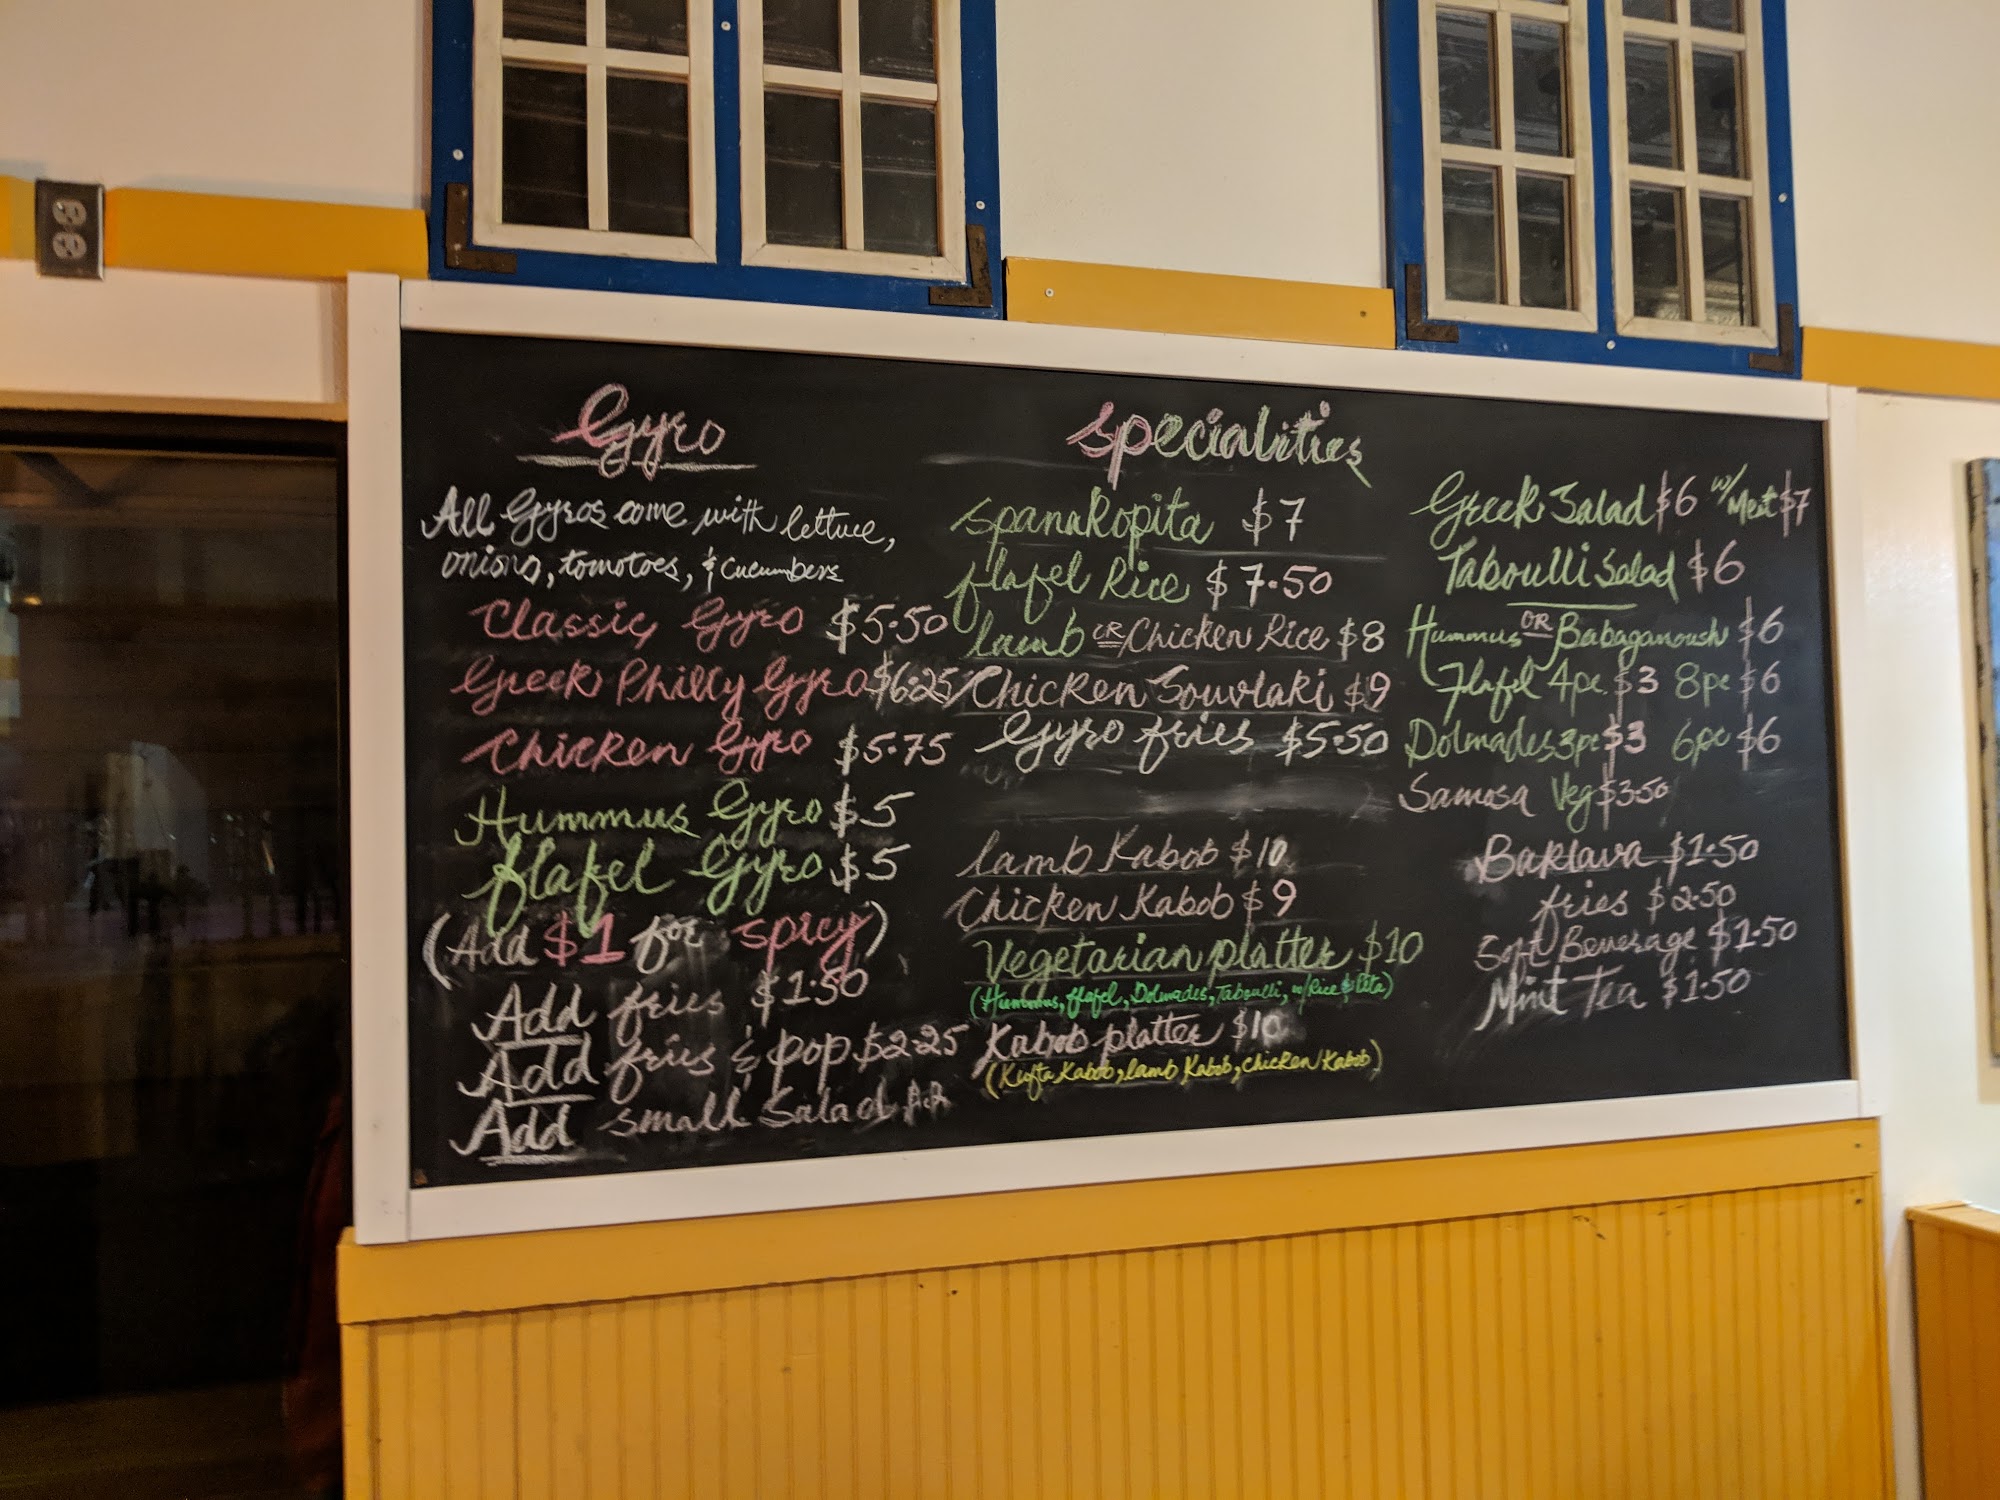 Gyro
All Gyros come with lettuce,
onions, tomotoes, & cucumbers
Classic Gyro $5.50
Greek Philly Gyro $6.25
Chicken Gyro $5.75
Hummus Gyro $5
flafel Gyro $5
(Add $1 for spicy)
Add fries $1.50
Add fries & pop $2.25
Add small Salad
Specialities
Spanakopita $7
flafel Rice $7.50
lamb OR Chicken Rice $8
Chicken Souvlaki $9
Gyro fries $5.50
lamb Kabob $10
Chicken Kabob $9
Vegetarian platter $10
(Hummus, flafel, Dolmades, Taboulli, w/Rice & Pita)
Kabob platter $10
(Kiofta Kabob, lamb Kabob, Chicken Kabob)
Greek Salad $6 w/ Meat $7
Taboulli Salad $6
Hummus OR Babaganoush $6
Flafel 4pc $3 8pc $6
Dolmades 3pc $3 6pc $6
Samosa Veg $3.50
Baklava $1.50
fries $2.50
Soft Beverage $1.50
Mint Tea $1.50